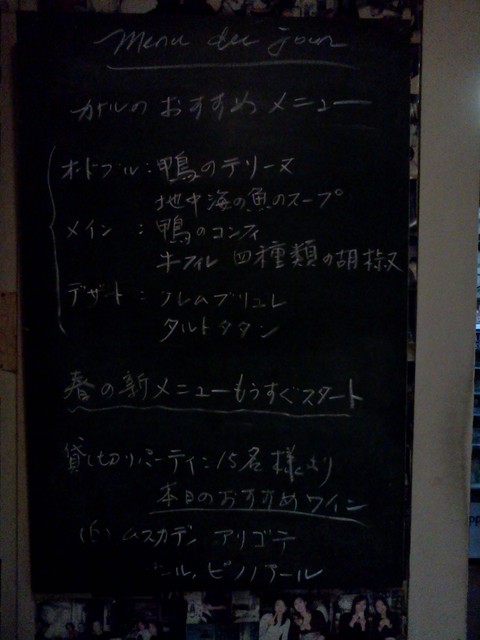 Menu du jour
ガルのおすすめメニュー
オードブル：鴨のテリーヌ
地中海の魚のスープ
メイン：鴨のコンフィ
牛フィレ 四種類の胡椒
デザート：クレムブリュレ
タルトタタン
春の新メニューもうすぐスタート
貸し切りパーティ：15名様より
本日のおすすめワイン
ムスカデ アリゴテ
ピノノアール